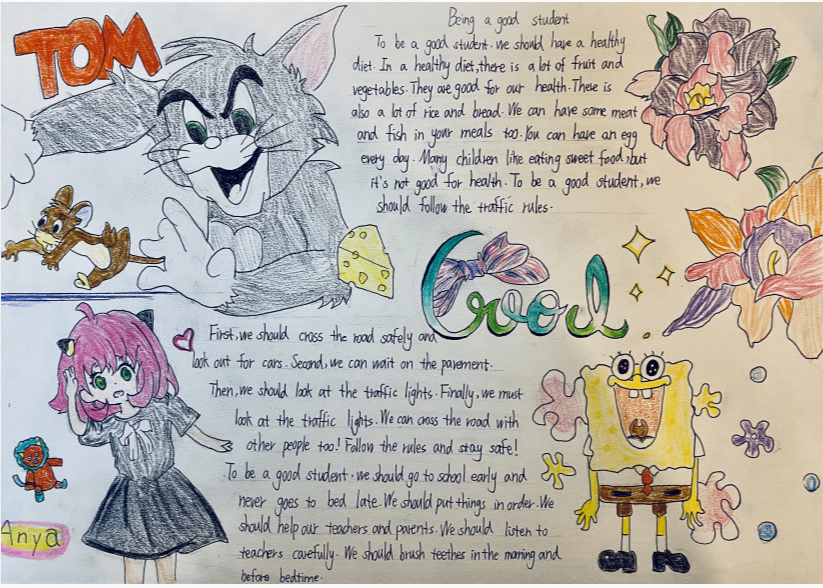 TOM
Being a good student
To be a good student. we should have a healthy
diet. In a healthy diet, there is a lot of fruit and
vegetables. They are good for our health. There is
also a lot of rice and bread. We can have some meat
and fish in your meals too. You can have an egg
every day. Many children like eating sweet food, but
it's not good for health. To be a good student, we
should follow the traffic rules.
Good
First, we should cross the road safely and
look out for cars. Second, we can wait on the pavement.
Then, we should look at the traffic lights. Finally, we must
look at the traffic lights. We can cross the road with
other people too! Follow the rules and stay safe!
To be a good student. we should go to school early and
never goes to bed late. We should put things in order. We
should help our teachers and parents. We should listen to
teachers carefully. We should brush teethes in the morning and
before bedtime.
Anya